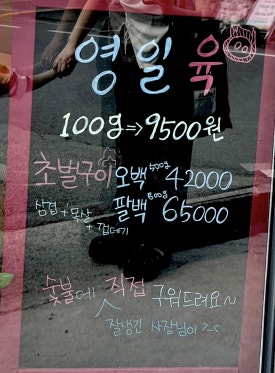 영일육
100g⇒9500원
초벌구이 오백 500g 42000
삼겹+목살+껍데기 팔백 800g 65000
숯불에 직접 구워드려요~
잘생긴 사장님이